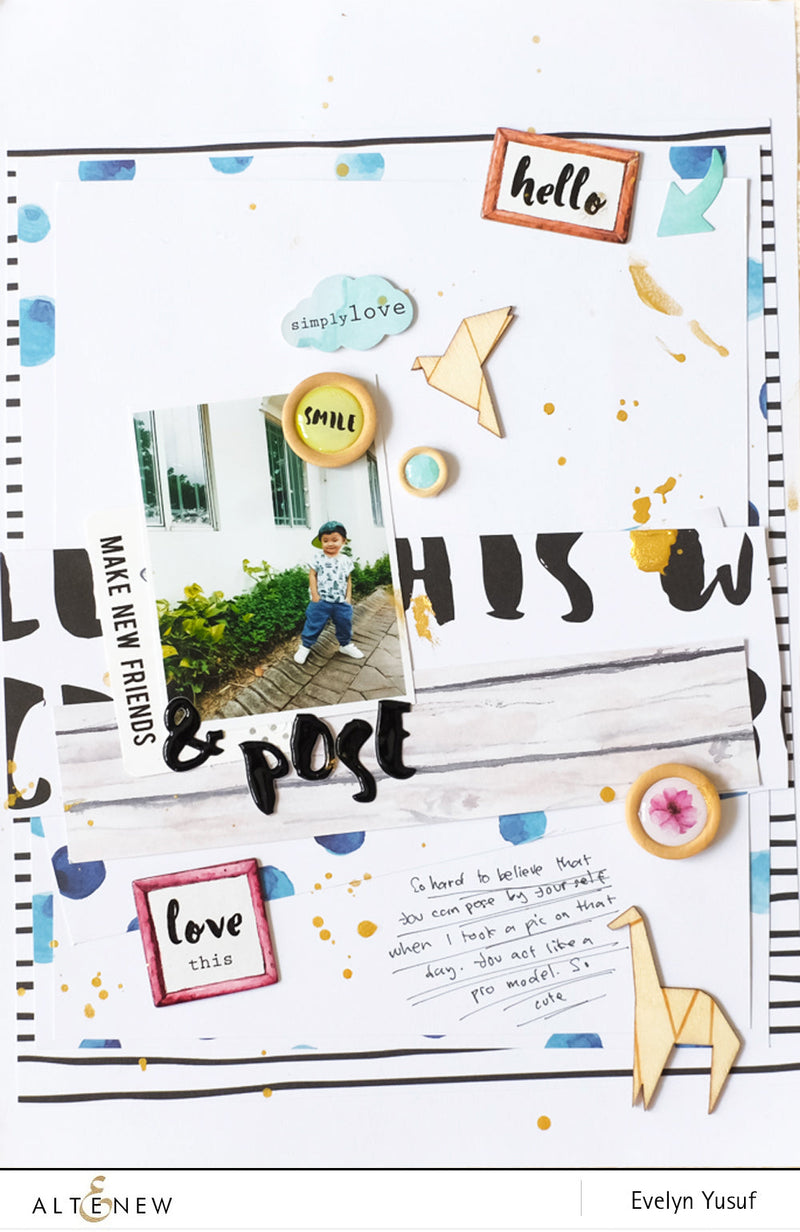 hello
simply love
SMILE
HIS W
MAKE NEW FRIENDS
& POSE
love
this
So hard to believe that
you can pose by your self
when I took a pic on that
day. You act like a
pro model. So
cute
ALTENEW
Evelyn Yusuf